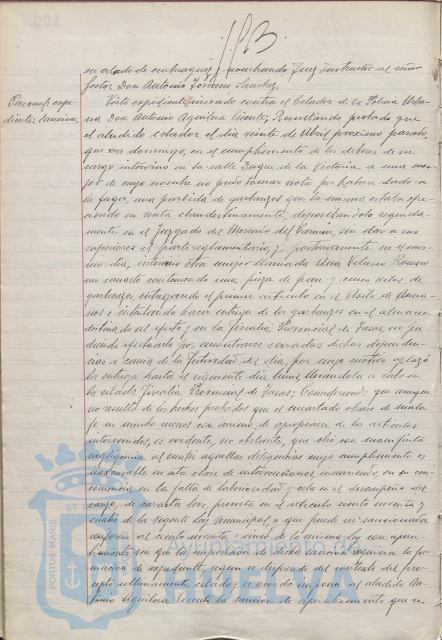 en estado de embriaguez y nombrando Juez Instructor al señor
Gestor Don Antonio Toscano Sanchez.
Resoluc. expe-
diente sancion.
Visto expediente incoado contra el Celador de la Policia Urba-
na Don Antonio Aguilera Vicente; Resultando probado que
el aludido celador el dia veinte de Abril proximo pasado,
que era domingo, en el cumplimiento de los deberes de su
cargo intervino en la calle Duque de la Victoria a una mu-
jer de cuyo nombre no pudo tomar nota por haberse dado a
la fuga, una partida de garbanzos que la misma estaba ofre-
ciendo en venta clandestinamente, depositandolo seguida-
mente en el Juzgado del Mercado del Carmen, sin dar a sus
superiores el parte reglamentario, y posteriormente en el mis-
mo dia, intervino otra mujer llamada Ana Velasco Romero
un canasto conteniendo una pieza de pan y cinco kilos de
garbanzos, entregando el primer articulo en el Asilo de Ancia-
nos e intentando hacer entrega de los garbanzos en el almacen
destinado al efecto y en la Fiscalia Provincial de Tasas, no pu-
diendo efectuarlo por encontrarse cerradas dichas dependen-
cias a causa de la festividad del dia, por cuyo motivo aplazó
la entrega hasta el siguiente dia lunes, llevandola a cabo en
la citada Fiscalia Provincial de Tasas; Considerando que aunque
no resulta de los hechos probados que el encartado obrase de mala
fe ni mucho menos con animo de apropiarse de los articulos
intervenidos, es evidente, no obstante, que obró con manifiesta
negligencia al omitir aquellas diligencias cuyo cumplimiento es
inexcusable en esta clase de intervenciones, incurriendo, en su con-
secuencia en la falta de laboriosidad y celo en el desempeño del
cargo, de caracter leve, prevista en el articulo ciento noventa y
cuatro de la vigente Ley Municipal, y que puede ser sancionada
conforme al ciento noventa y cinco de la misma Ley con aperci-
bimiento sin que la imposición de dicha sancion requiera la for-
macion de expediente, segun se desprende del contexto del pre-
cepto ultimamente citado; se acordó imponer al aludido An-
tonio Aguilera Vicente la sancion de apercibimiento que se
PORTUS MARIS ET
AYUNTAMIENTO DE
HUELVA